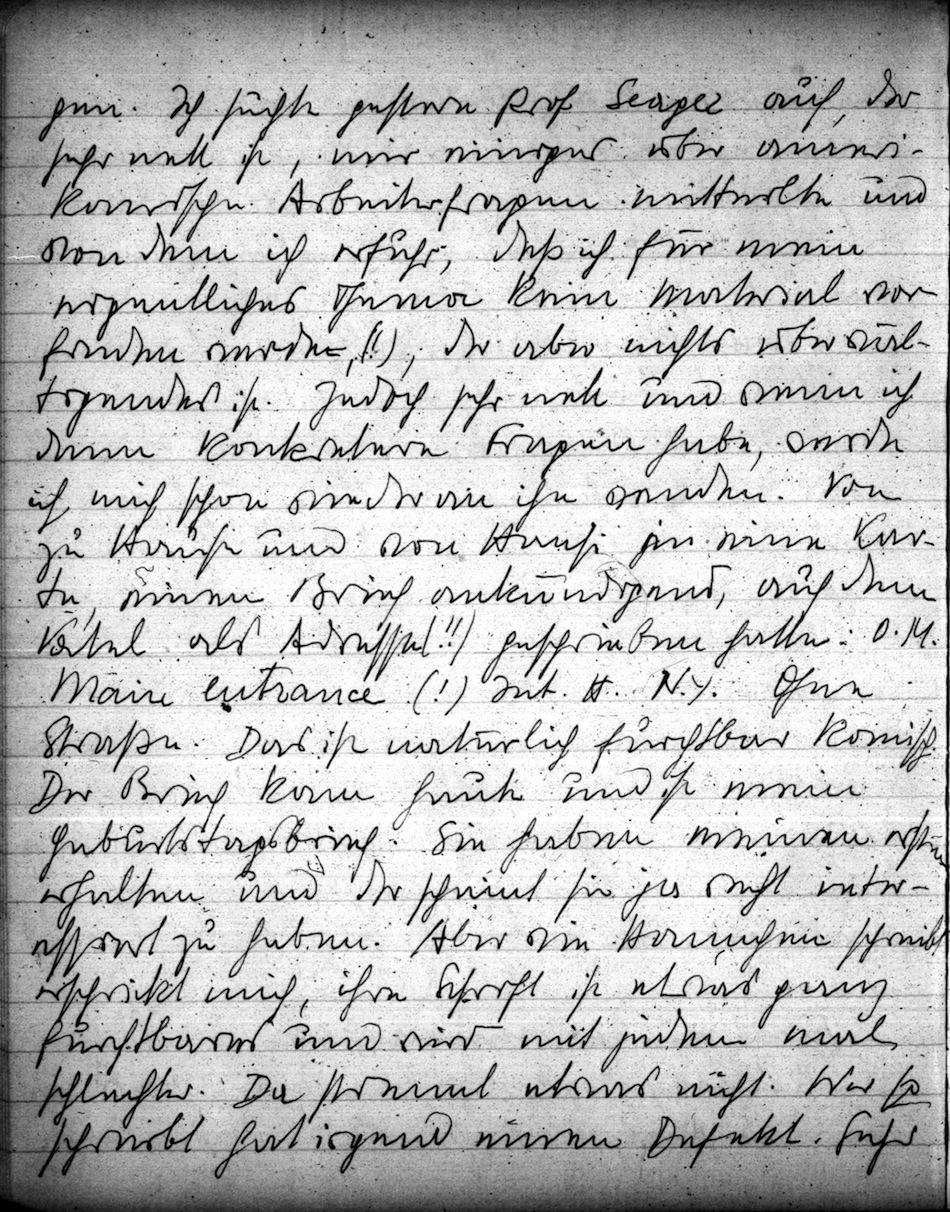 gen. Ich suchte gestern Prof Seager auf, der
sehr nett ist, mir einiges über ameri-
kanische Arbeiterfragen mitteilte und
von dem ich erfuhr, daß ich für mein
eigentliches Thema kein Material vor
finden werde (!!), der aber nichts überwäl-
tigendes ist. Jedoch sehr nett und wenn ich
dann konkretere Fragen habe, werde
ich mich schon wieder an ihn wenden. Von
zu Hause und von Hansi je eine Kar-
te, einen Brief ankündigend, auf dem
Vatel als Adresse (!!) geschrieben hatte: O.M.
Main entrance (!) Int. H. N.Y. Ohne
Straße. Das ist natürlich furchtbar komisch.
Der Brief kam heute und ist mein
Geburtstagsbrief. Sie haben meinen ersten
erhalten und der scheint sie ja recht inter-
essiert zu haben. Aber wie Hannchen schreibt
erschrickt mich, ihre Schrift ist etwas ganz
furchtbares und wird mit jedem mal
schlechter. Da stimmt etwas nicht. Wer so
schreibt hat irgend einen Defekt. Sehr